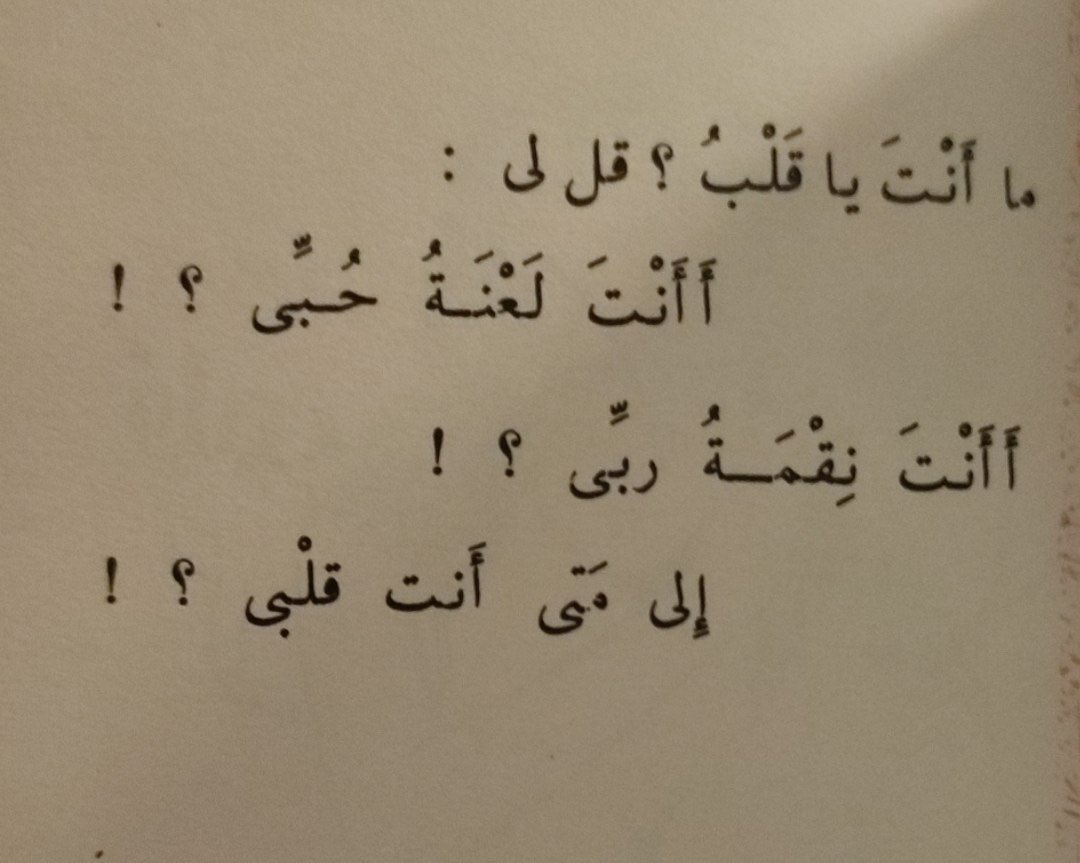 ما أَنْتَ يا قَلْبُ ؟ قل لى :
أَأَنْتَ لَعْنَـةُ حُـبِّى ؟ !
أَأَنْتَ نِقْمَـةُ ربِّى ؟ !
إِلى مَتى أَنت قلْبى ؟ !